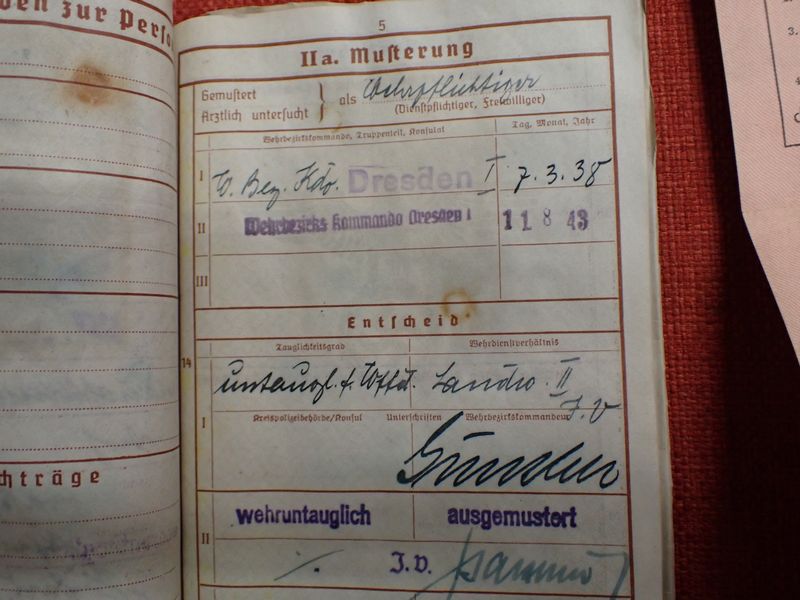 5
en zur Perso
IIa. Musterung
Gemustert
Ärztlich untersucht } als Wehrpflichtiger
(Dienstpflichtiger, Freiwilliger)
Wehrbezirkskommando, Truppenteil, Konsulat
Tag, Monat, Jahr
I W. Bez. Kdo. Dresden I 7.3.38
II Wehrbezirks Kommando Dresden I 11 8 43
III
Entscheid
Tauglichkeitsgrad
Wehrdienstverhältnis
14
untaugl. f. Landw. II
I
J.V
Kreispolizeibehörde/Konsul Unterschriften Wehrbezirkskommandeur
wehruntauglich ausgemustert
II
J.V.
chträge
3.
4